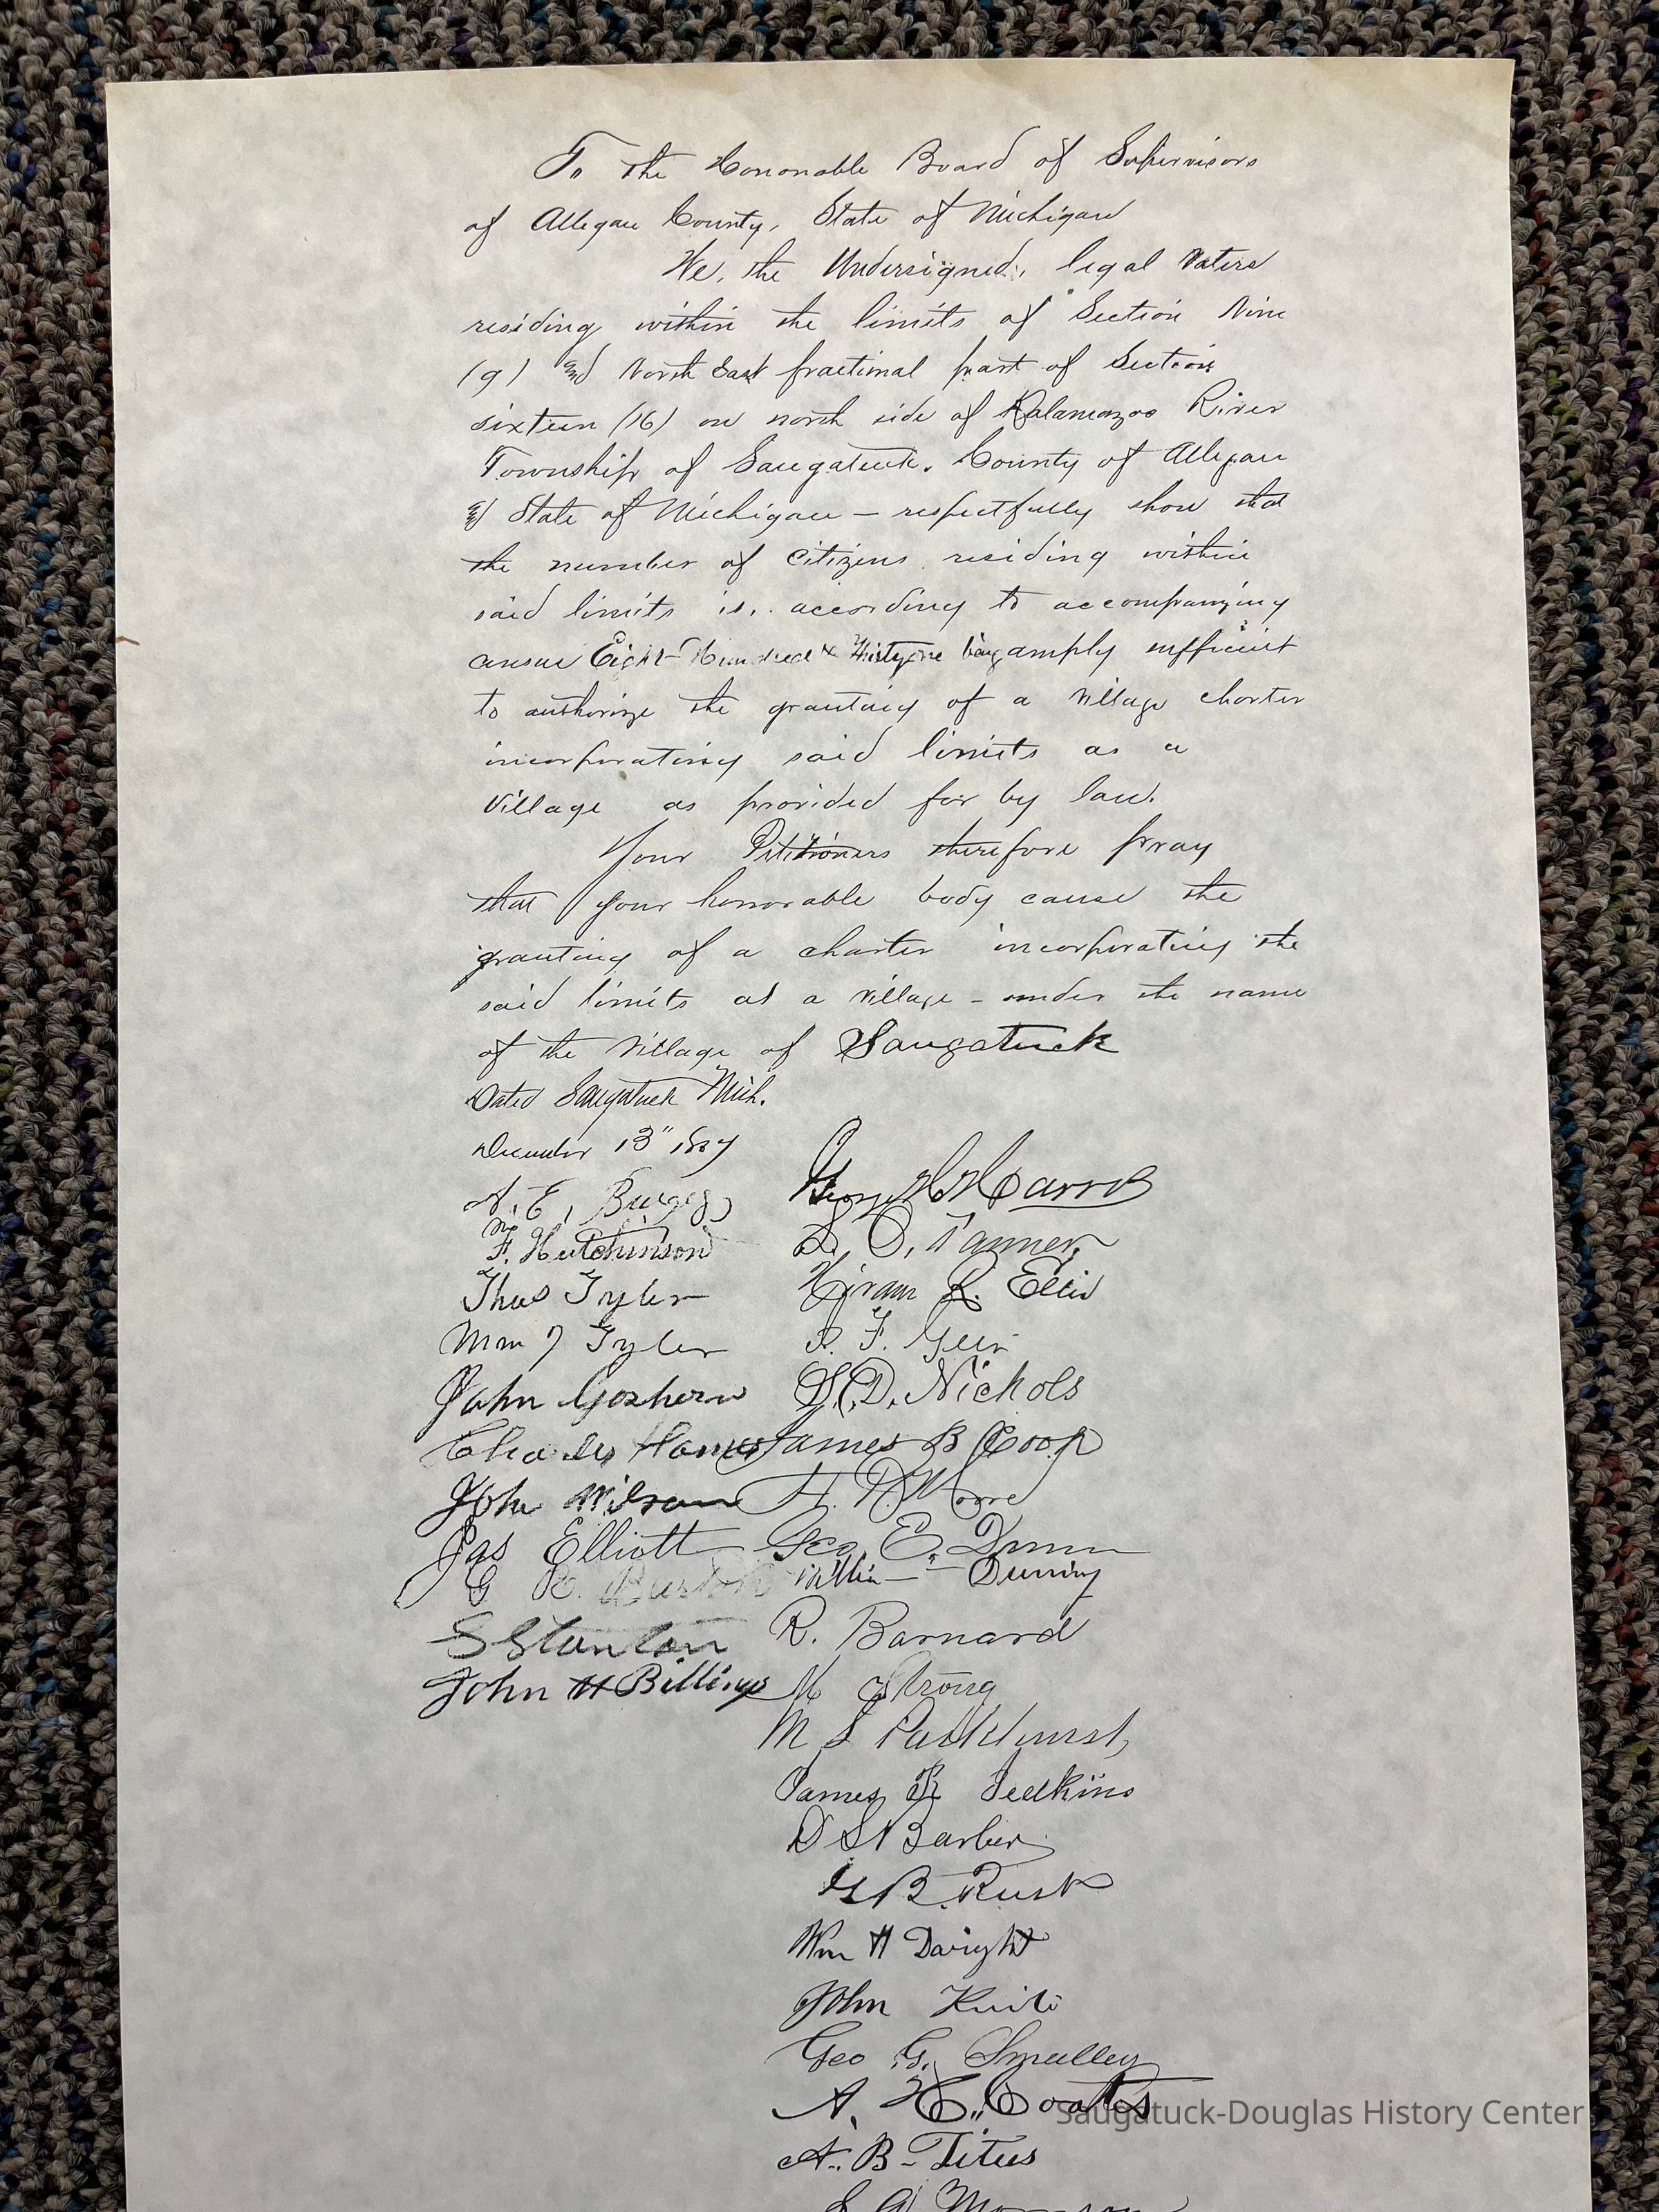 To the Honorable Board of Supervisors
of Allegan County, State of Michigan
We, the Undersigned, legal Voters
residing within the limits of Section Nine
(9) and North East fractional part of Section
sixteen (16) on north side of Kalamazoo River
Township of Saugatuck, County of Allegan
and State of Michigan — respectfully show that
the number of Citizens residing within
said limits is, according to accompanying
census Eight Hundred & Thirty one being amply sufficient
to authorize the granting of a village charter
incorporating said limits as a
Village as provided for by law.
Your Petitioners therefore pray
that your honorable body cause the
granting of a charter incorporating the
said limits as a village - under the name
of the Village of Saugatuck
Dated Saugatuck Mich.
December 13"
A. E.
F. Hutchinson
Thos Tyler
Wm J Tyler
John Goshorn
Charles
John Wilson
Jas Elliott
G
S Stanton
John H Billings
George H
L. O. Tanner
Hiram R. Ellis
F.
S. D. Nichols
James B Coop
H. D. Moore
Geo. E. Dunn
R. Barnard
M Strong
M S Parkhurst,
James
D S Barber
G B Rusk
Wm H Dwight
John
Geo G. Smalley
A. H. Coates
A. B. Titus
Saugatuck-Douglas History Center